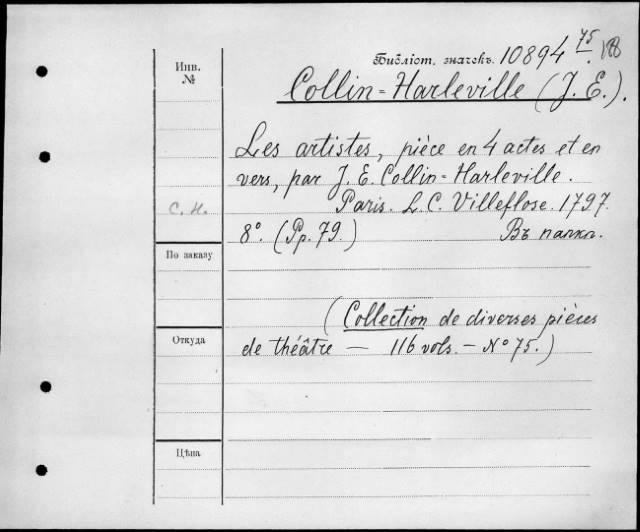 Библіот. значекъ. 10894 75.
Инв.
№
Collin-Harleville (J. E.).
Les artistes, pièce en 4 actes et en
vers, par J. E. Collin-Harleville.
Paris. L. C. Villeflose. 1797.
С. Н.
8°. (Pp. 79.) Въ папкѣ.
По заказу
(Collection de diverses pièces
Откуда
de théâtre — 116 vols. — № 75.)
Цѣна